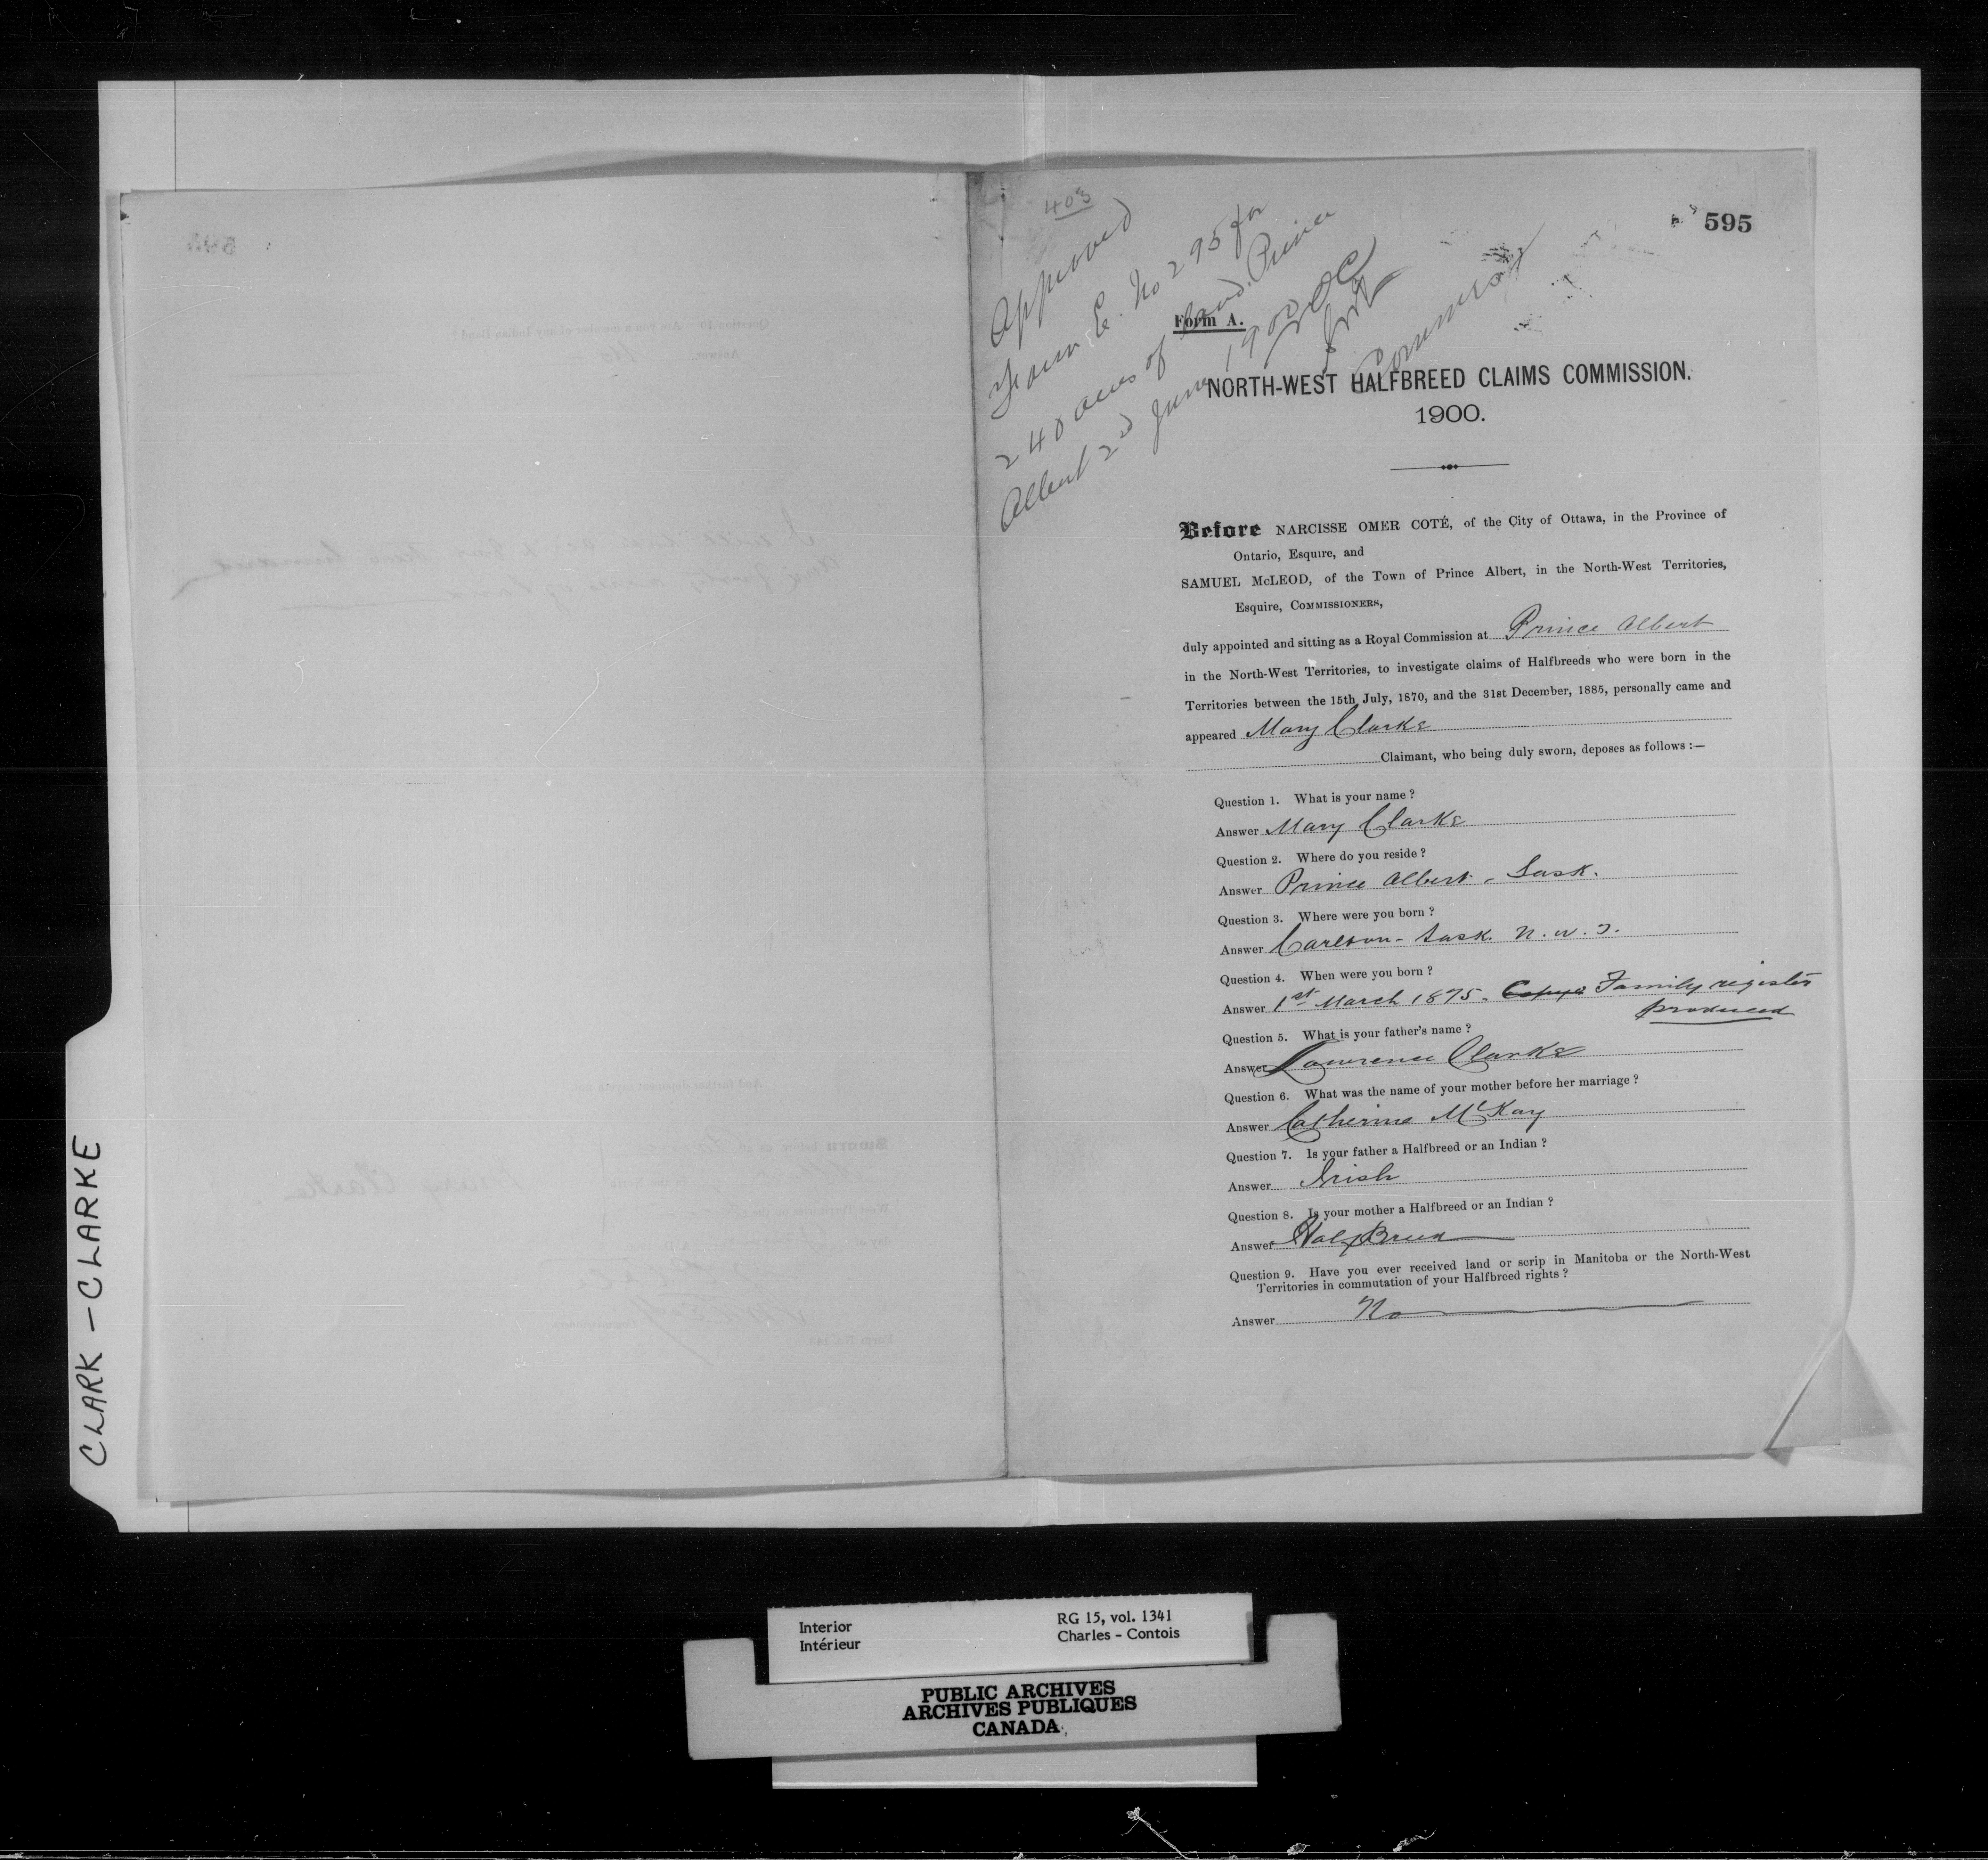 CLARK - CLARKE
403
595
Approved
Form E. No 295 for
240 acres of land. Prince
Albert 2nd June 1900
Form A.
NORTH-WEST HALFBREED CLAIMS COMMISSION.
1900.
Before NARCISSE OMER COTÉ, of the City of Ottawa, in the Province of
Ontario, Esquire, and
SAMUEL McLEOD, of the Town of Prince Albert, in the North-West Territories,
Esquire, COMMISSIONERS,
duly appointed and sitting as a Royal Commission at Prince Albert
in the North-West Territories, to investigate claims of Halfbreeds who were born in the
Territories between the 15th July, 1870, and the 31st December, 1885, personally came and
appeared Mary Clarke
Claimant, who being duly sworn, deposes as follows :—
Question 1. What is your name ?
Answer Mary Clarke
Question 2. Where do you reside ?
Answer Prince Albert - Sask.
Question 3. Where were you born ?
Answer Carlton - Sask. N. W. T.
Question 4. When were you born ?
Answer 1st March 1875. Family register
produced
Question 5. What is your father's name ?
Answer Lawrence Clarke
Question 6. What was the name of your mother before her marriage ?
Answer Catherine McKay
Question 7. Is your father a Halfbreed or an Indian ?
Answer Irish
Question 8. Is your mother a Halfbreed or an Indian ?
Answer Half Breed
Question 9. Have you ever received land or scrip in Manitoba or the North-West
Territories in commutation of your Halfbreed rights ?
Answer No
Interior
Intérieur
RG 15, vol. 1341
Charles - Contois
PUBLIC ARCHIVES
ARCHIVES PUBLIQUES
CANADA